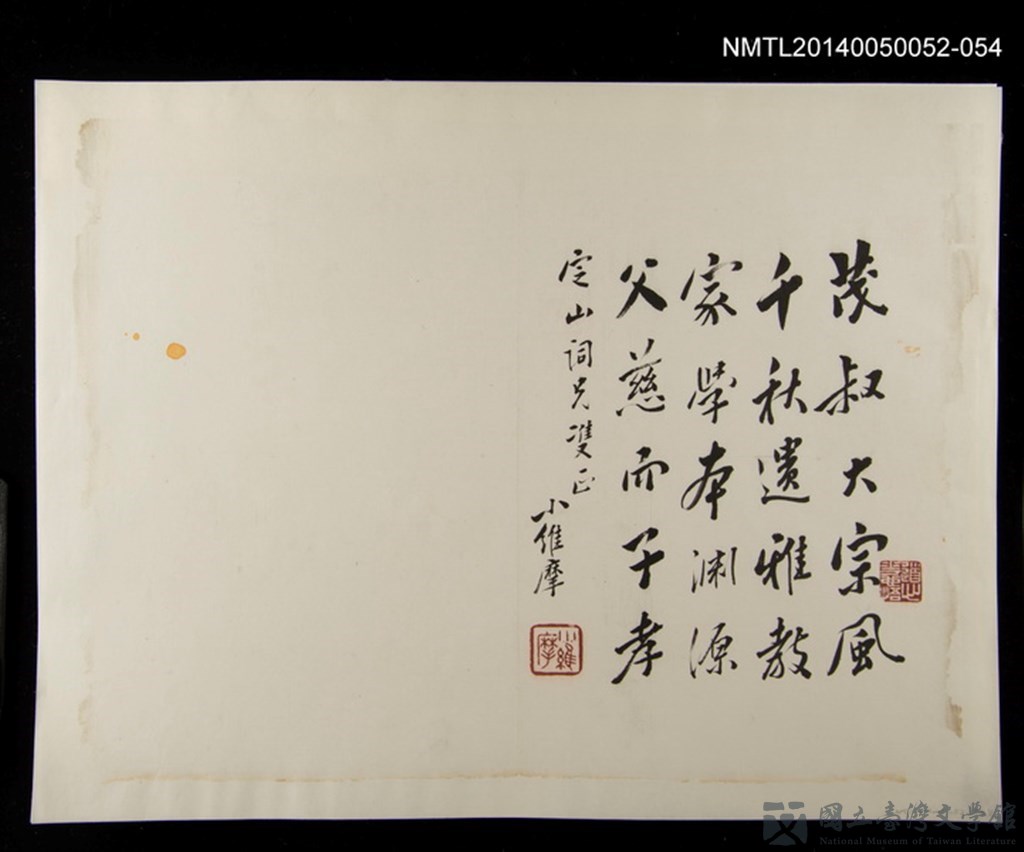 NMTL20140050052-054
茂叔大宗風
千秋遺雅教
家學本渊源
父慈而子孝
定山詞兄雙正
小維摩
小維摩
國立臺灣文學館
National Museum of Taiwan Literature